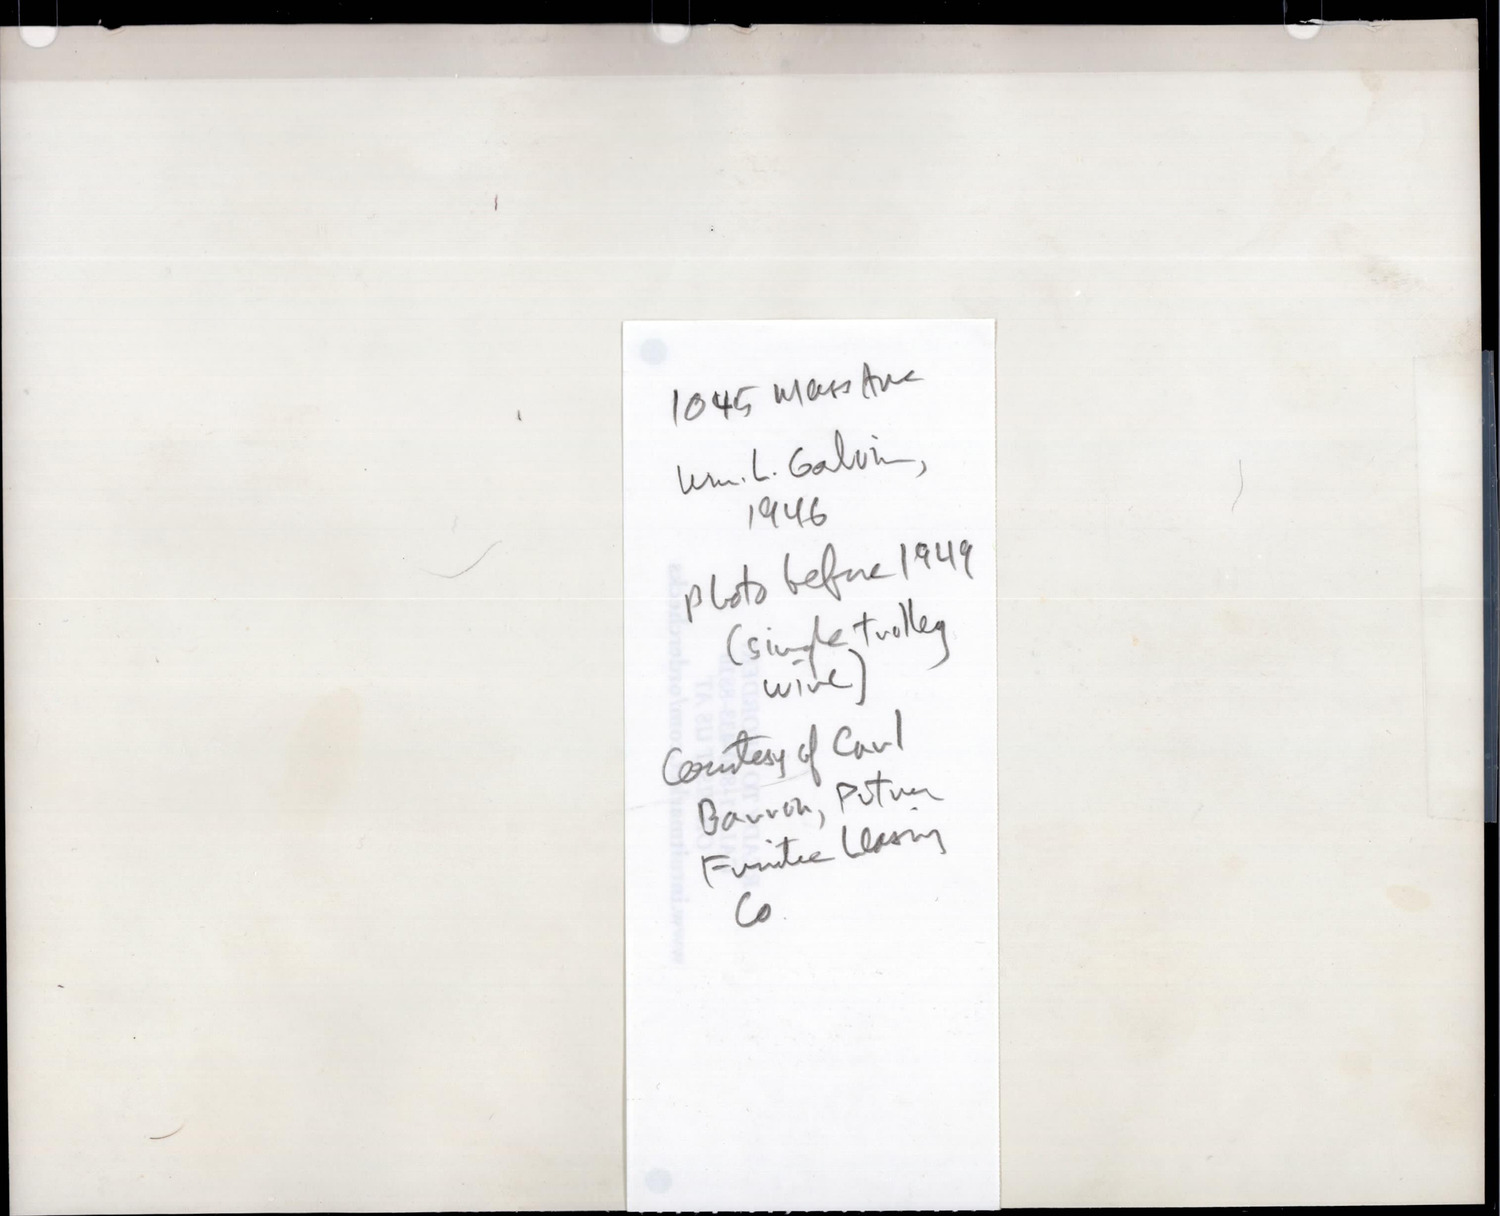 1045 Mass Ave
Wm. L. Galvin,
1946
photo before 1949
(single trolley
wire)
Courtesy of Carl
Barron, Putnam
Furniture Leasing
Co